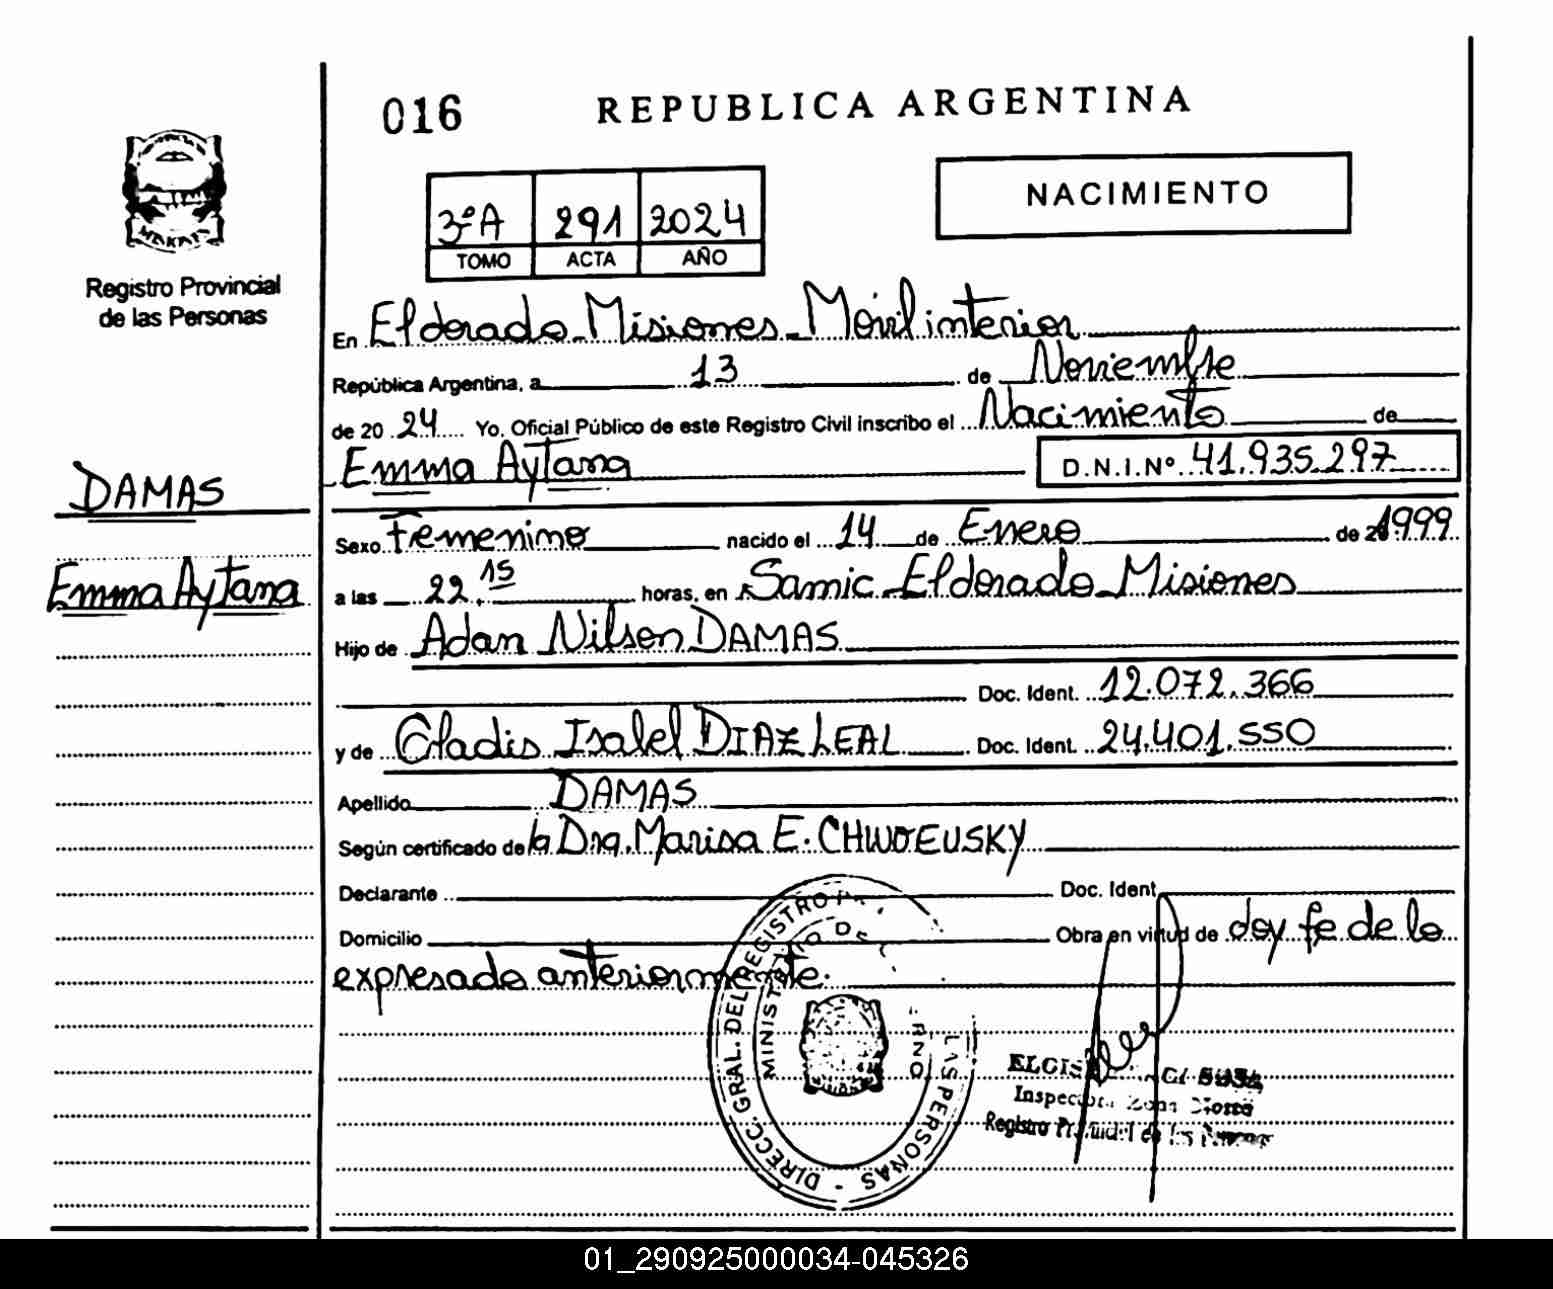 016
REPUBLICA ARGENTINA
NACIMIENTO
3ºA 291 2024
TOMO ACTA AÑO
Registro Provincial
de las Personas
En Eldorado - Misiones - Móvil interior
República Argentina, a 13 de Noviembre
de 20 24 Yo, Oficial Público de este Registro Civil inscribo el Nacimiento de
Emma Aytana D.N.I.Nº 41.935.297
DAMAS
Emma Aytana
Sexo Femenino nacido el 14 de Enero de 1999
a las 22.15 horas, en Samic - Eldorado - Misiones
Hijo de Adan Nilson DAMAS
Doc. Ident. 12.072.366
y de Gladis Isabel DIAZ LEAL Doc. Ident. 24.401.550
Apellido DAMAS
Según certificado de la Dra. Marisa E.
Declarante Doc. Ident.
Domicilio Obra en virtud de doy fe de lo
expresado anteriormente.
DIRECC. GRAL. DEL REGISTRO LAS PERSONAS -
MINISTERIO DE
Inspectora Zona Norte
Registro Provincial de las Personas
01_290925000034-045326